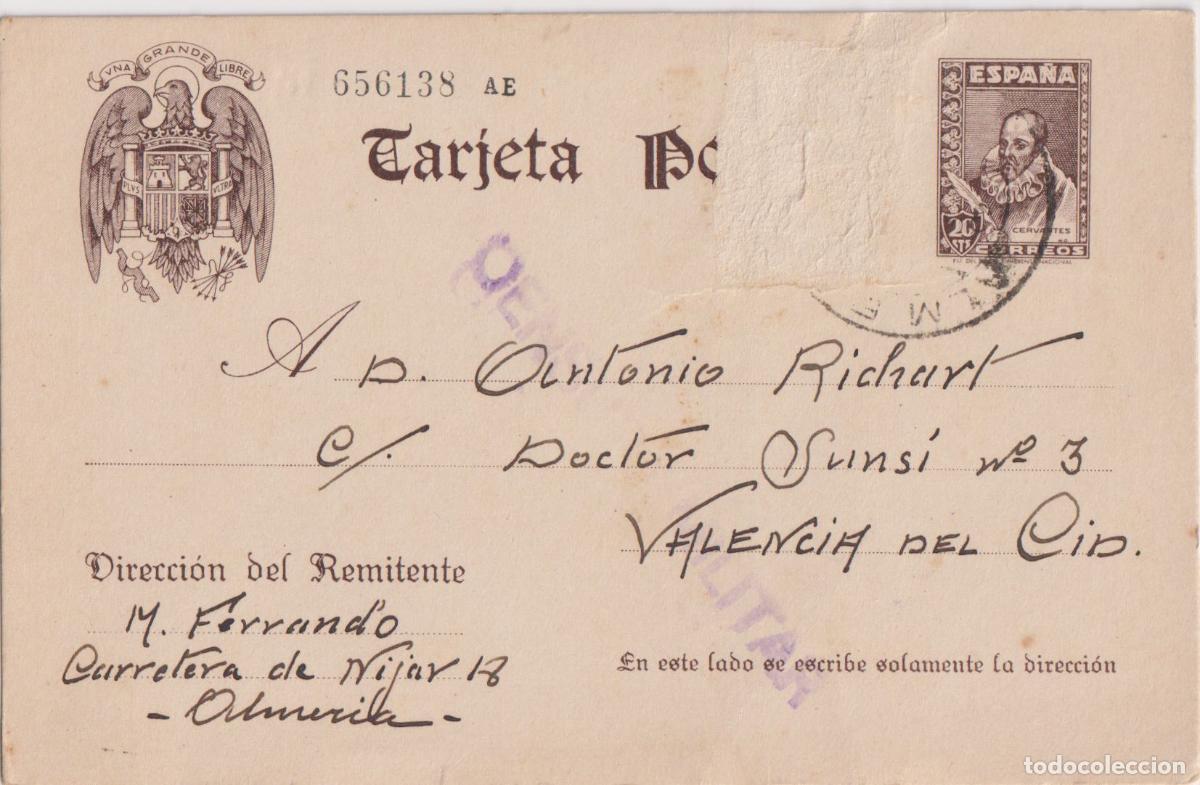 VNA GRANDE LIBRE
656138 AE
ESPAÑA
Tarjeta Po
PLVS VLTRA
20 CTS
CERVANTES
CORREOS
CENS
A D. Antonio Richart
C/. Doctor Sunsí nº 3
VALENCIA DEL CID.
MILITAR
Dirección del Remitente
M. Ferrando
Carretera de Nijar 18
- Almeria -
En este lado se escribe solamente la dirección
todocoleccion